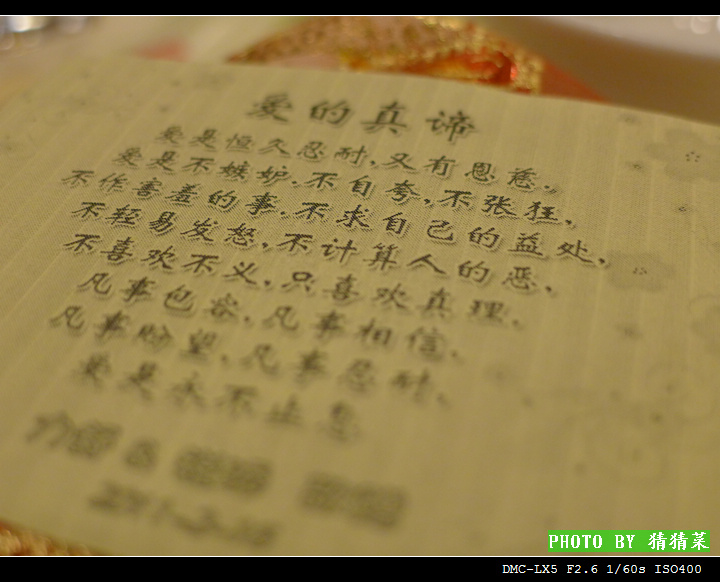 爱的真谛
爱是恒久忍耐,又有恩慈.,
爱是不嫉妒.不自夸,不张狂,,
不作害羞的事.不求自己的益处,
不轻易发怒,不计算人的恶,
不喜欢不义,只喜欢真理.
凡事包容.凡事相信.
凡事盼望.凡事忍耐.
爱是永不止息
PHOTO BY 猜猜菜
DMC-LX5 F2.6 1/60s ISO400